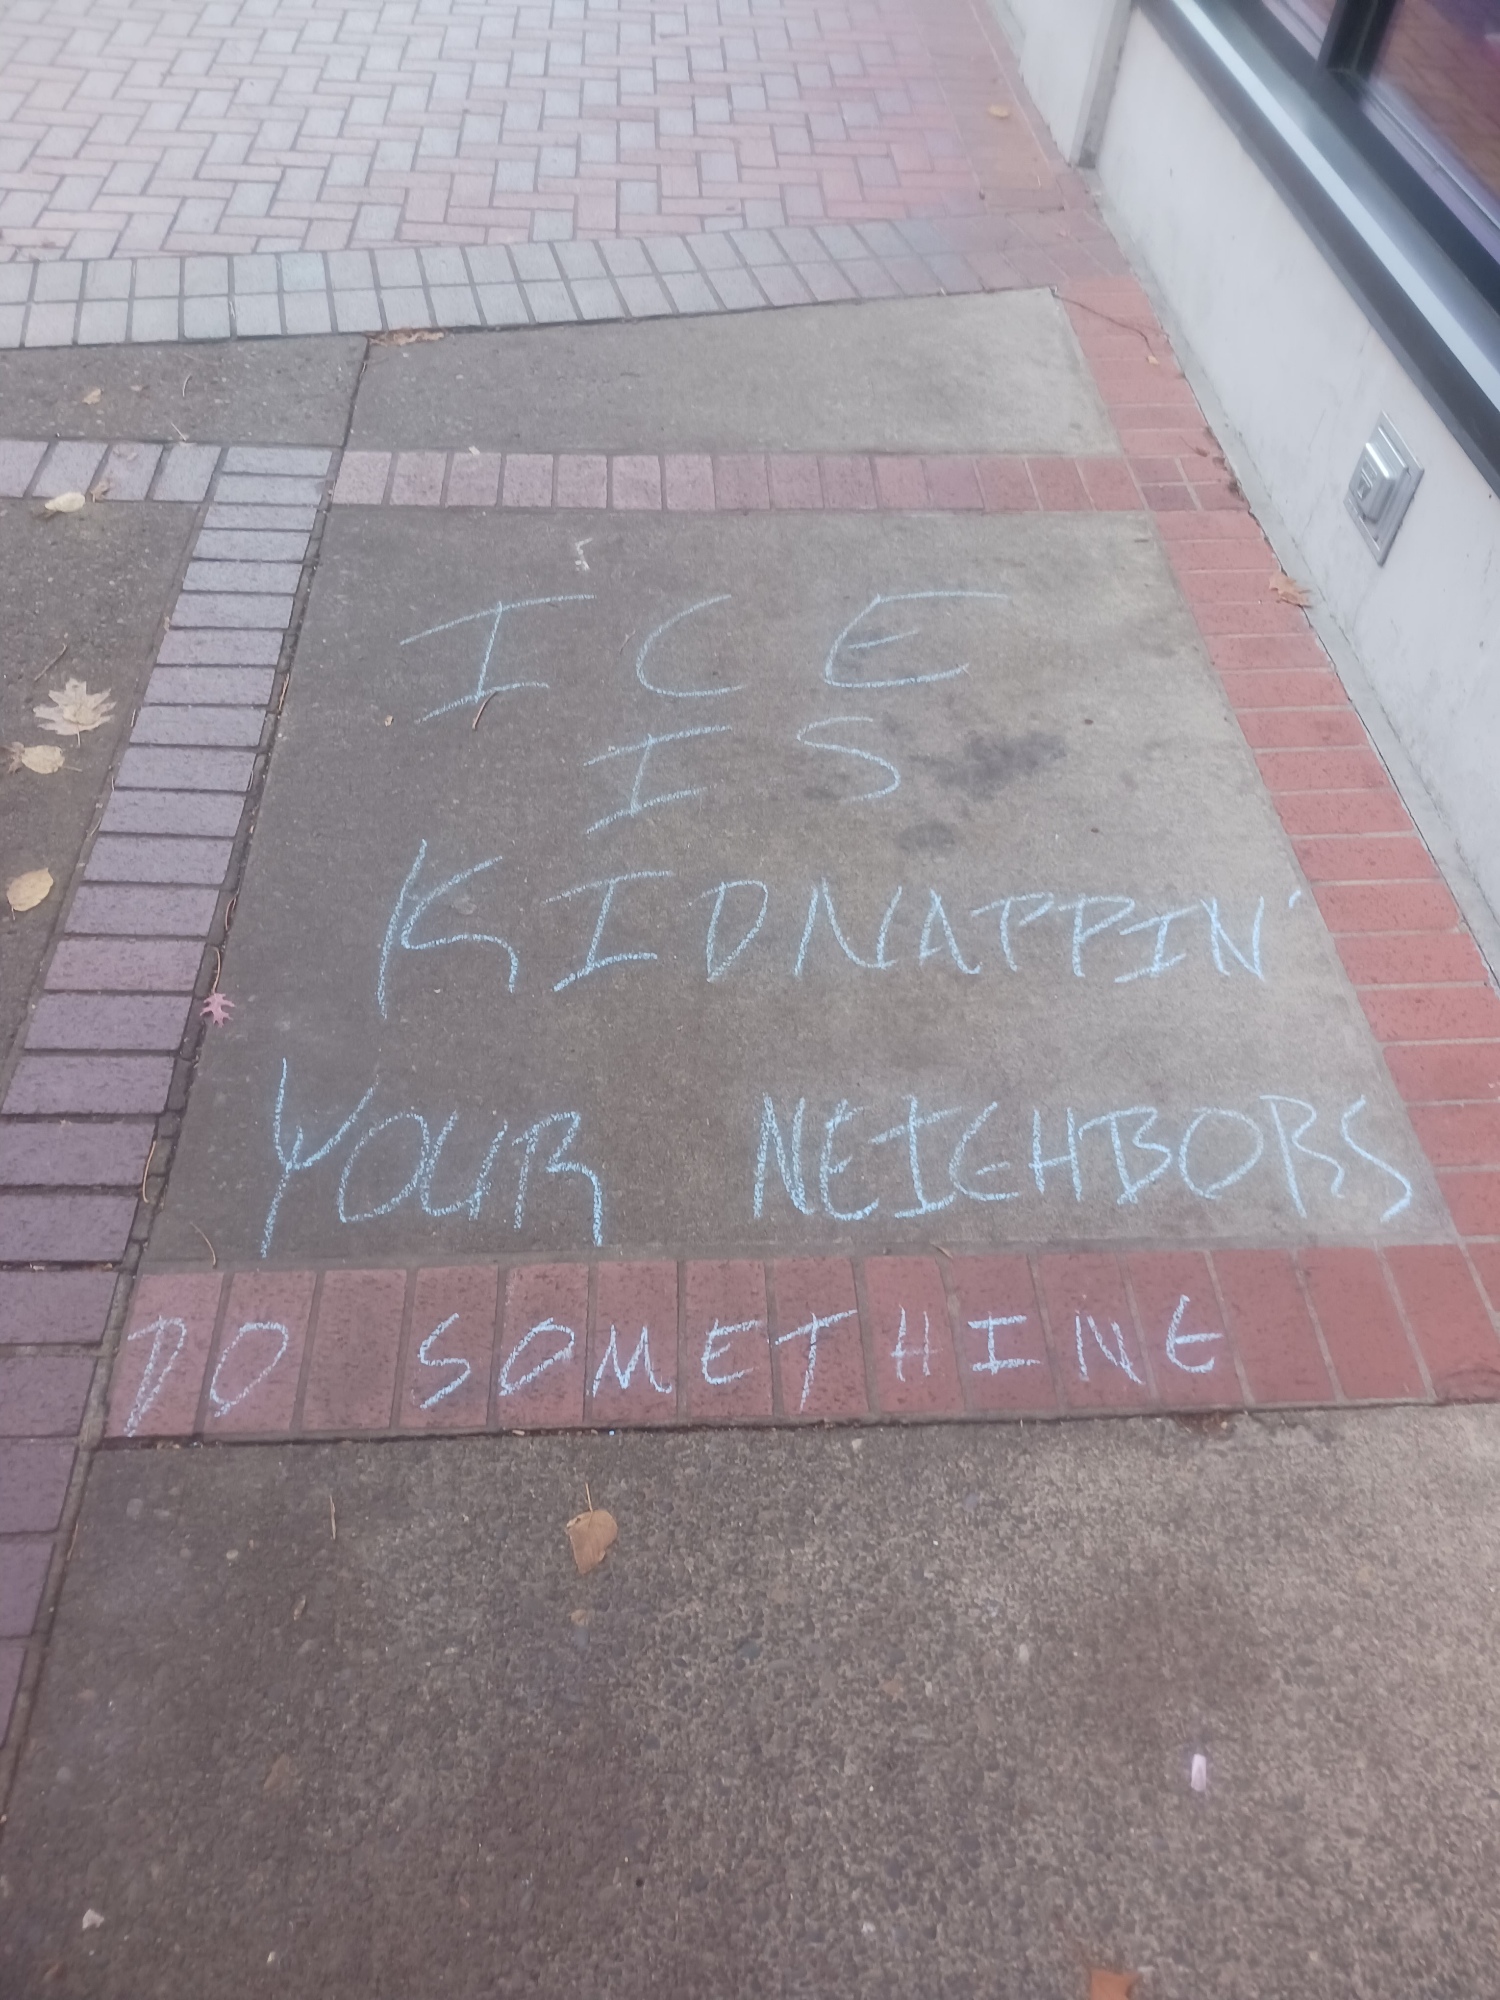 ICE
IS
KIDNAPPIN'
YOUR NEIGHBORS
DO SOMETHING